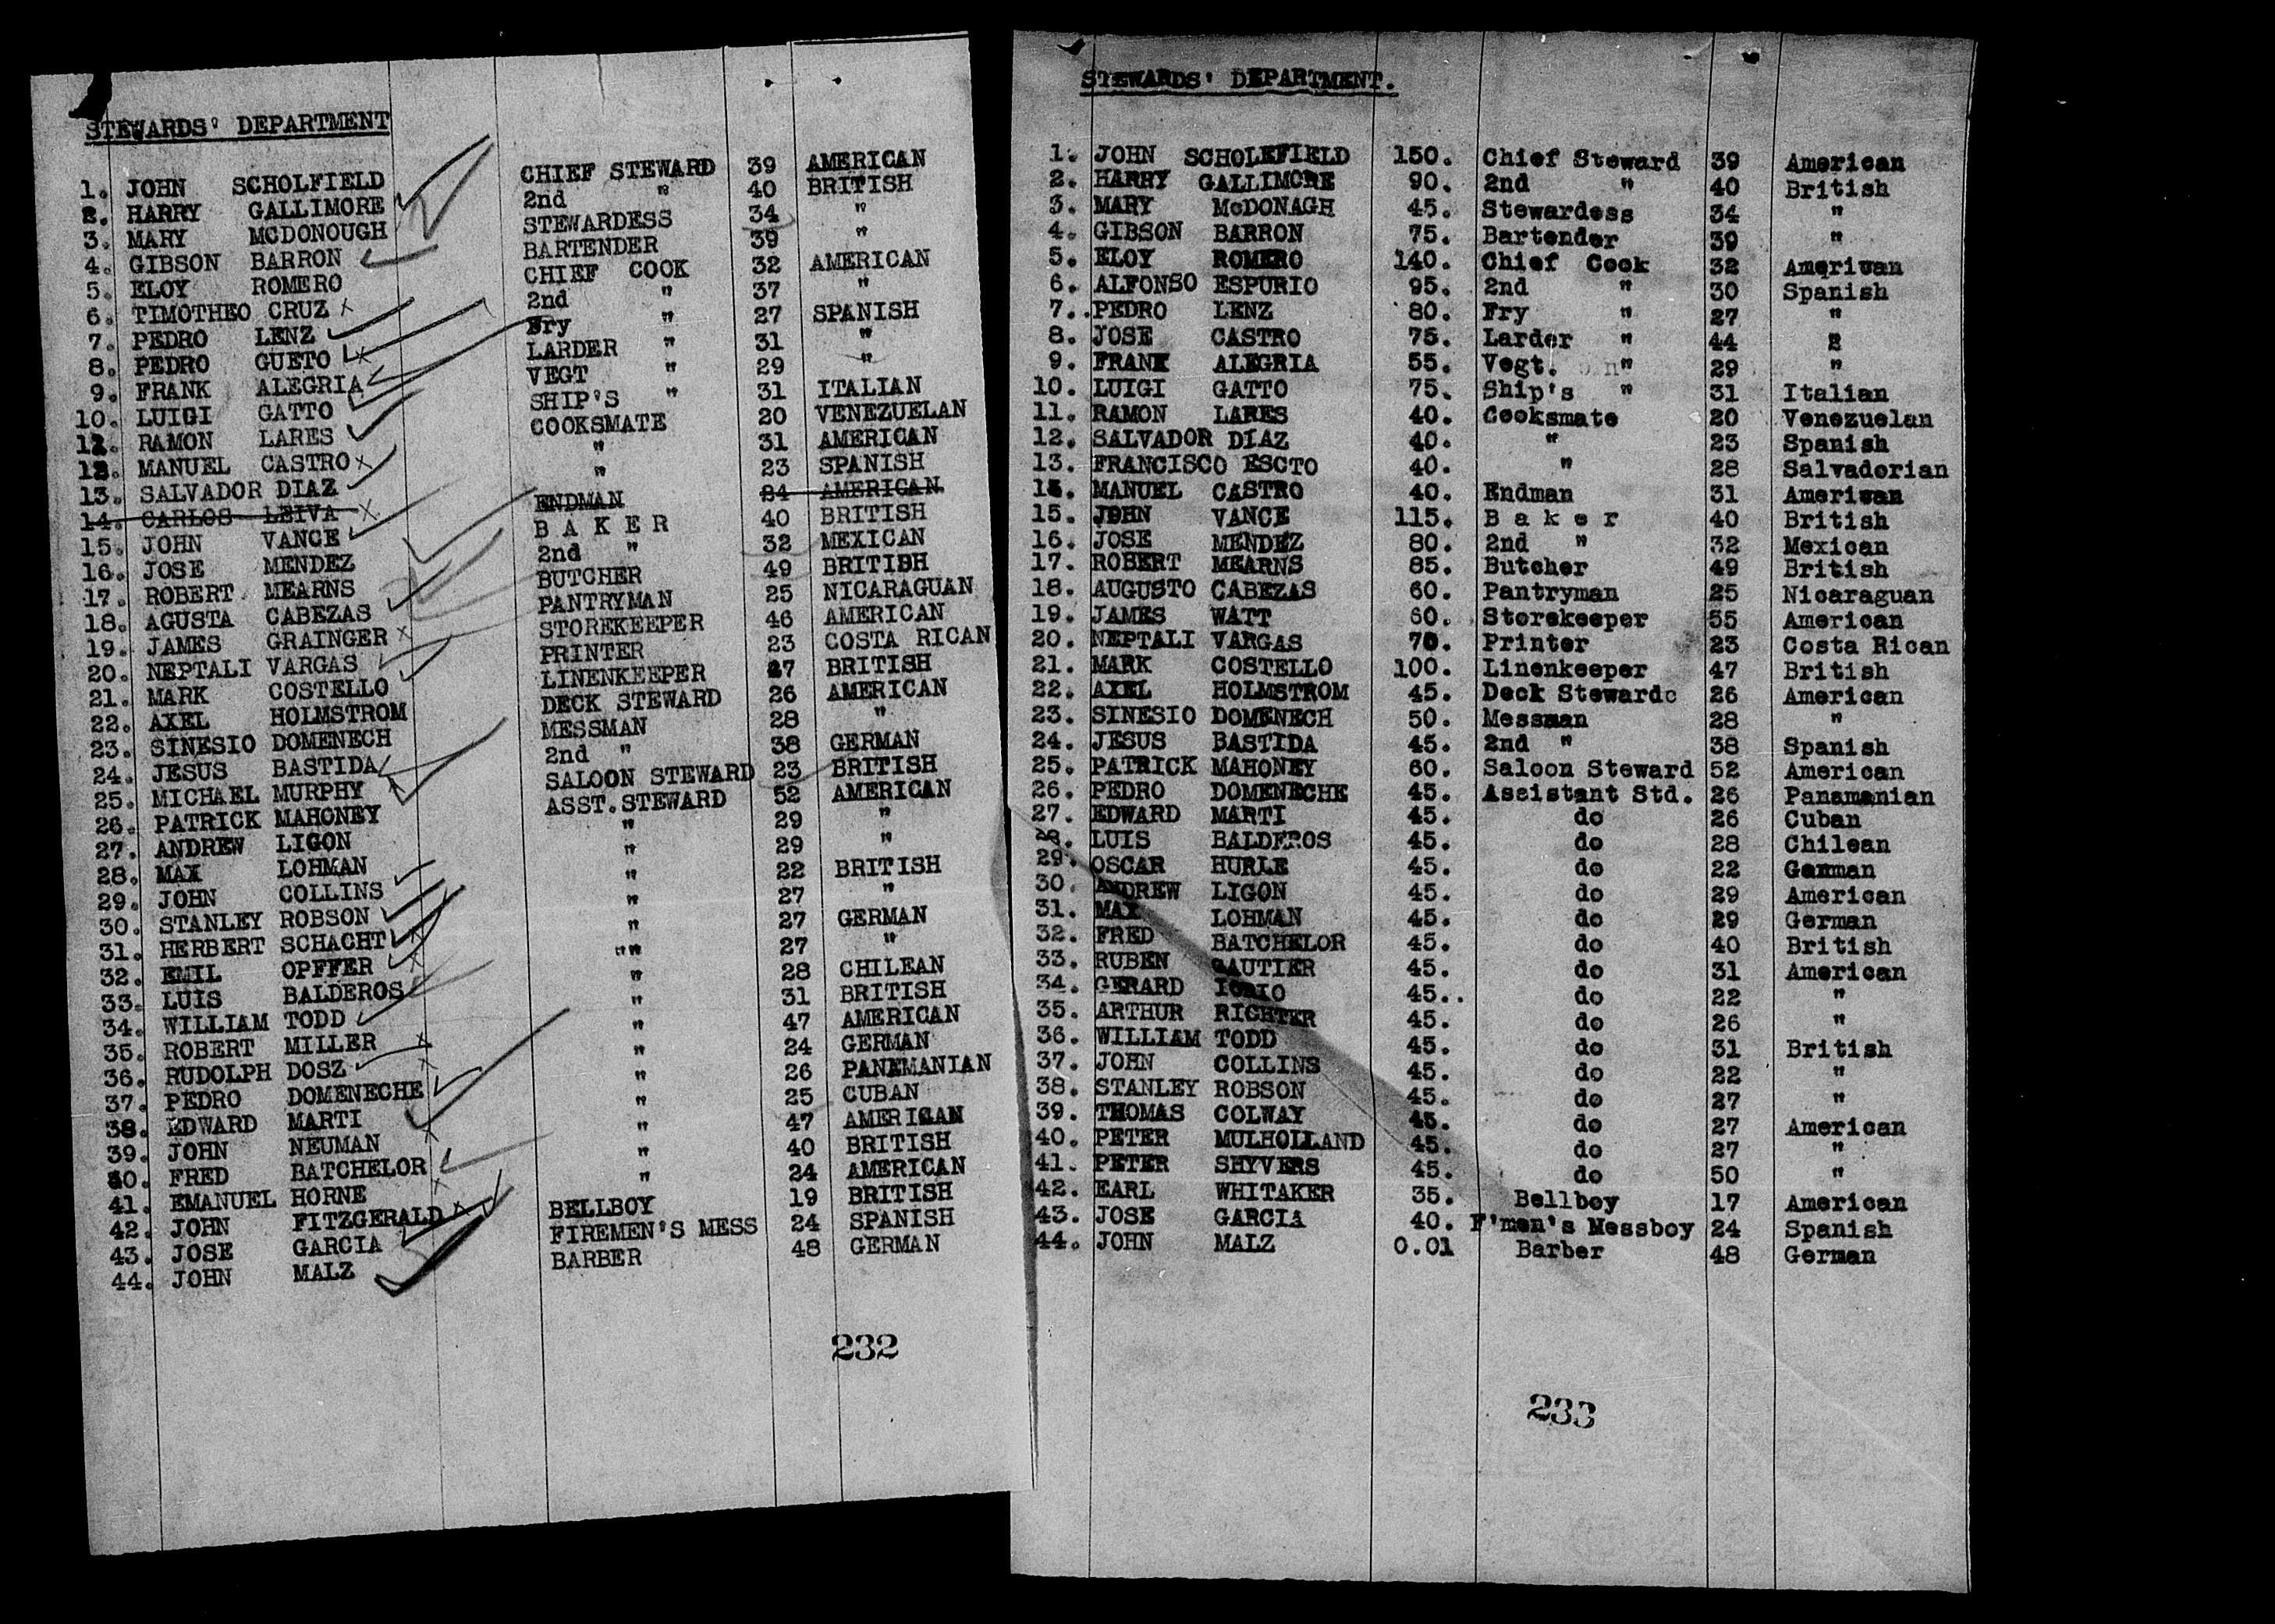 STEWARDS' DEPARTMENT
1. JOHN SCHOLFIELD CHIEF STEWARD 39 AMERICAN
2. HARRY GALLIMORE 2nd " 40 BRITISH
3. MARY MCDONOUGH STEWARDESS 34 "
4. GIBSON BARRON BARTENDER 39 "
5. ELOY ROMERO CHIEF COOK 32 AMERICAN
6. TIMOTHEO CRUZ X 2nd " 37 "
7. PEDRO LENZ Fry " 27 SPANISH
8. PEDRO GUETO X LARDER " 31 "
9. FRANK ALEGRIA VEGT " 29 "
10. LUIGI GATTO SHIP'S " 31 ITALIAN
11. RAMON LARES COOKSMATE 20 VENEZUELAN
12. MANUEL CASTRO X " 31 AMERICAN
13. SALVADOR DIAZ " 23 SPANISH
14. CARLOS LEIVA X ENDMAN 24 AMERICAN
15. JOHN VANCE B A K E R 40 BRITISH
16. JOSE MENDEZ 2nd " 32 MEXICAN
17. ROBERT MEARNS BUTCHER 49 BRITISH
18. AGUSTA CABEZAS PANTRYMAN 25 NICARAGUAN
19. JAMES GRAINGER X STOREKEEPER 46 AMERICAN
20. NEPTALI VARGAS PRINTER 23 COSTA RICAN
21. MARK COSTELLO LINENKEEPER 47 BRITISH
22. AXEL HOLMSTROM DECK STEWARD 26 AMERICAN
23. SINESIO DOMENECH MESSMAN 28 "
24. JESUS BASTIDA 2nd " 38 GERMAN
25. MICHAEL MURPHY X SALOON STEWARD 23 BRITISH
26. PATRICK MAHONEY ASST.STEWARD 52 AMERICAN
27. ANDREW LIGON " 29 "
28. MAX LOHMAN " 29 "
29. JOHN COLLINS " 22 BRITISH
30. STANLEY ROBSON " 27 "
31. HERBERT SCHACHT X " 27 GERMAN
32. EMIL OPFFER X "" 27 "
33. LUIS BALDEROS " 28 CHILEAN
34. WILLIAM TODD " 31 BRITISH
35. ROBERT MILLER X " 47 AMERICAN
36. RUDOLPH DOSZ X " 24 GERMAN
37. PEDRO DOMENECHE " 26 PANEMANIAN
38. EDWARD MARTI " 25 CUBAN
39. JOHN NEUMAN X " 47 AMERICAN
40. FRED BATCHELOR " 40 BRITISH
41. EMANUEL HORNE X " 24 AMERICAN
42. JOHN FITZGERALD X BELLBOY 19 BRITISH
43. JOSE GARCIA FIREMEN'S MESS 24 SPANISH
44. JOHN MALZ BARBER 48 GERMAN
232
STEWARDS' DEPARTMENT.
1. JOHN SCHOLEFIELD 150. Chief Steward 39 American
2. HARRY GALLIMORE 90. 2nd " 40 British
3. MARY McDONAGH 45. Stewardess 34 "
4. GIBSON BARRON 75. Bartender 39 "
5. ELOY ROMERO 140. Chief Cook 32 American
6. ALFONSO ESPURIO 95. 2nd " 30 Spanish
7.. PEDRO LENZ 80. Fry " 27 "
8. JOSE CASTRO 75. Larder " 44 "
9. FRANK ALEGRIA 55. Vegt. " 29 "
10. LUIGI GATTO 75. Ship's " 31 Italian
11. RAMON LARES 40. Cooksmate 20 Venezuelan
12. SALVADOR DIAZ 40. " 23 Spanish
13. FRANCISCO ESCTO 40. " 28 Salvadorian
14. MANUEL CASTRO 40. Endman 31 American
15. JOHN VANCE 115. B a k e r 40 British
16. JOSE MENDEZ 80. 2nd " 32 Mexican
17. ROBERT MEARNS 85. Butcher 49 British
18. AUGUSTO CABEZAS 60. Pantryman 25 Nicaraguan
19. JAMES WATT 60. Storekeeper 55 American
20. NEPTALI VARGAS 70. Printer 23 Costa Rican
21. MARK COSTELLO 100. Linenkeeper 47 British
22. AXEL HOLMSTROM 45. Deck Stewardc 26 American
23. SINESIO DOMENECH 50. Messman 28 "
24. JESUS BASTIDA 45. 2nd " 38 Spanish
25. PATRICK MAHONEY 60. Saloon Steward 52 American
26. PEDRO DOMENECHE 45. Assistant Std. 26 Panamanian
27. EDWARD MARTI 45. do 26 Cuban
28. LUIS BALDEROS 45. do 28 Chilean
29. OSCAR HURLE 45. do 22 German
30. ANDREW LIGON 45. do 29 American
31. MAX LOHMAN 45. do 29 German
32. FRED BATCHELOR 45. do 40 British
33. RUBEN GAUTIER 45. do 31 American
34. GERARD IORIO 45.. do 22 "
35. ARTHUR RICHTER 45. do 26 "
36. WILLIAM TODD 45. do 31 British
37. JOHN COLLINS 45. do 22 "
38. STANLEY ROBSON 45. do 27 "
39. THOMAS COLWAY 45. do 27 American
40. PETER MULHOLLAND 45. do 27 "
41. PETER SHYVERS 45. do 50 "
42. EARL WHITAKER 35. Bellboy 17 American
43. JOSE GARCIA 40. F'men's Messboy 24 Spanish
44. JOHN MALZ 0.01 Barber 48 German
233